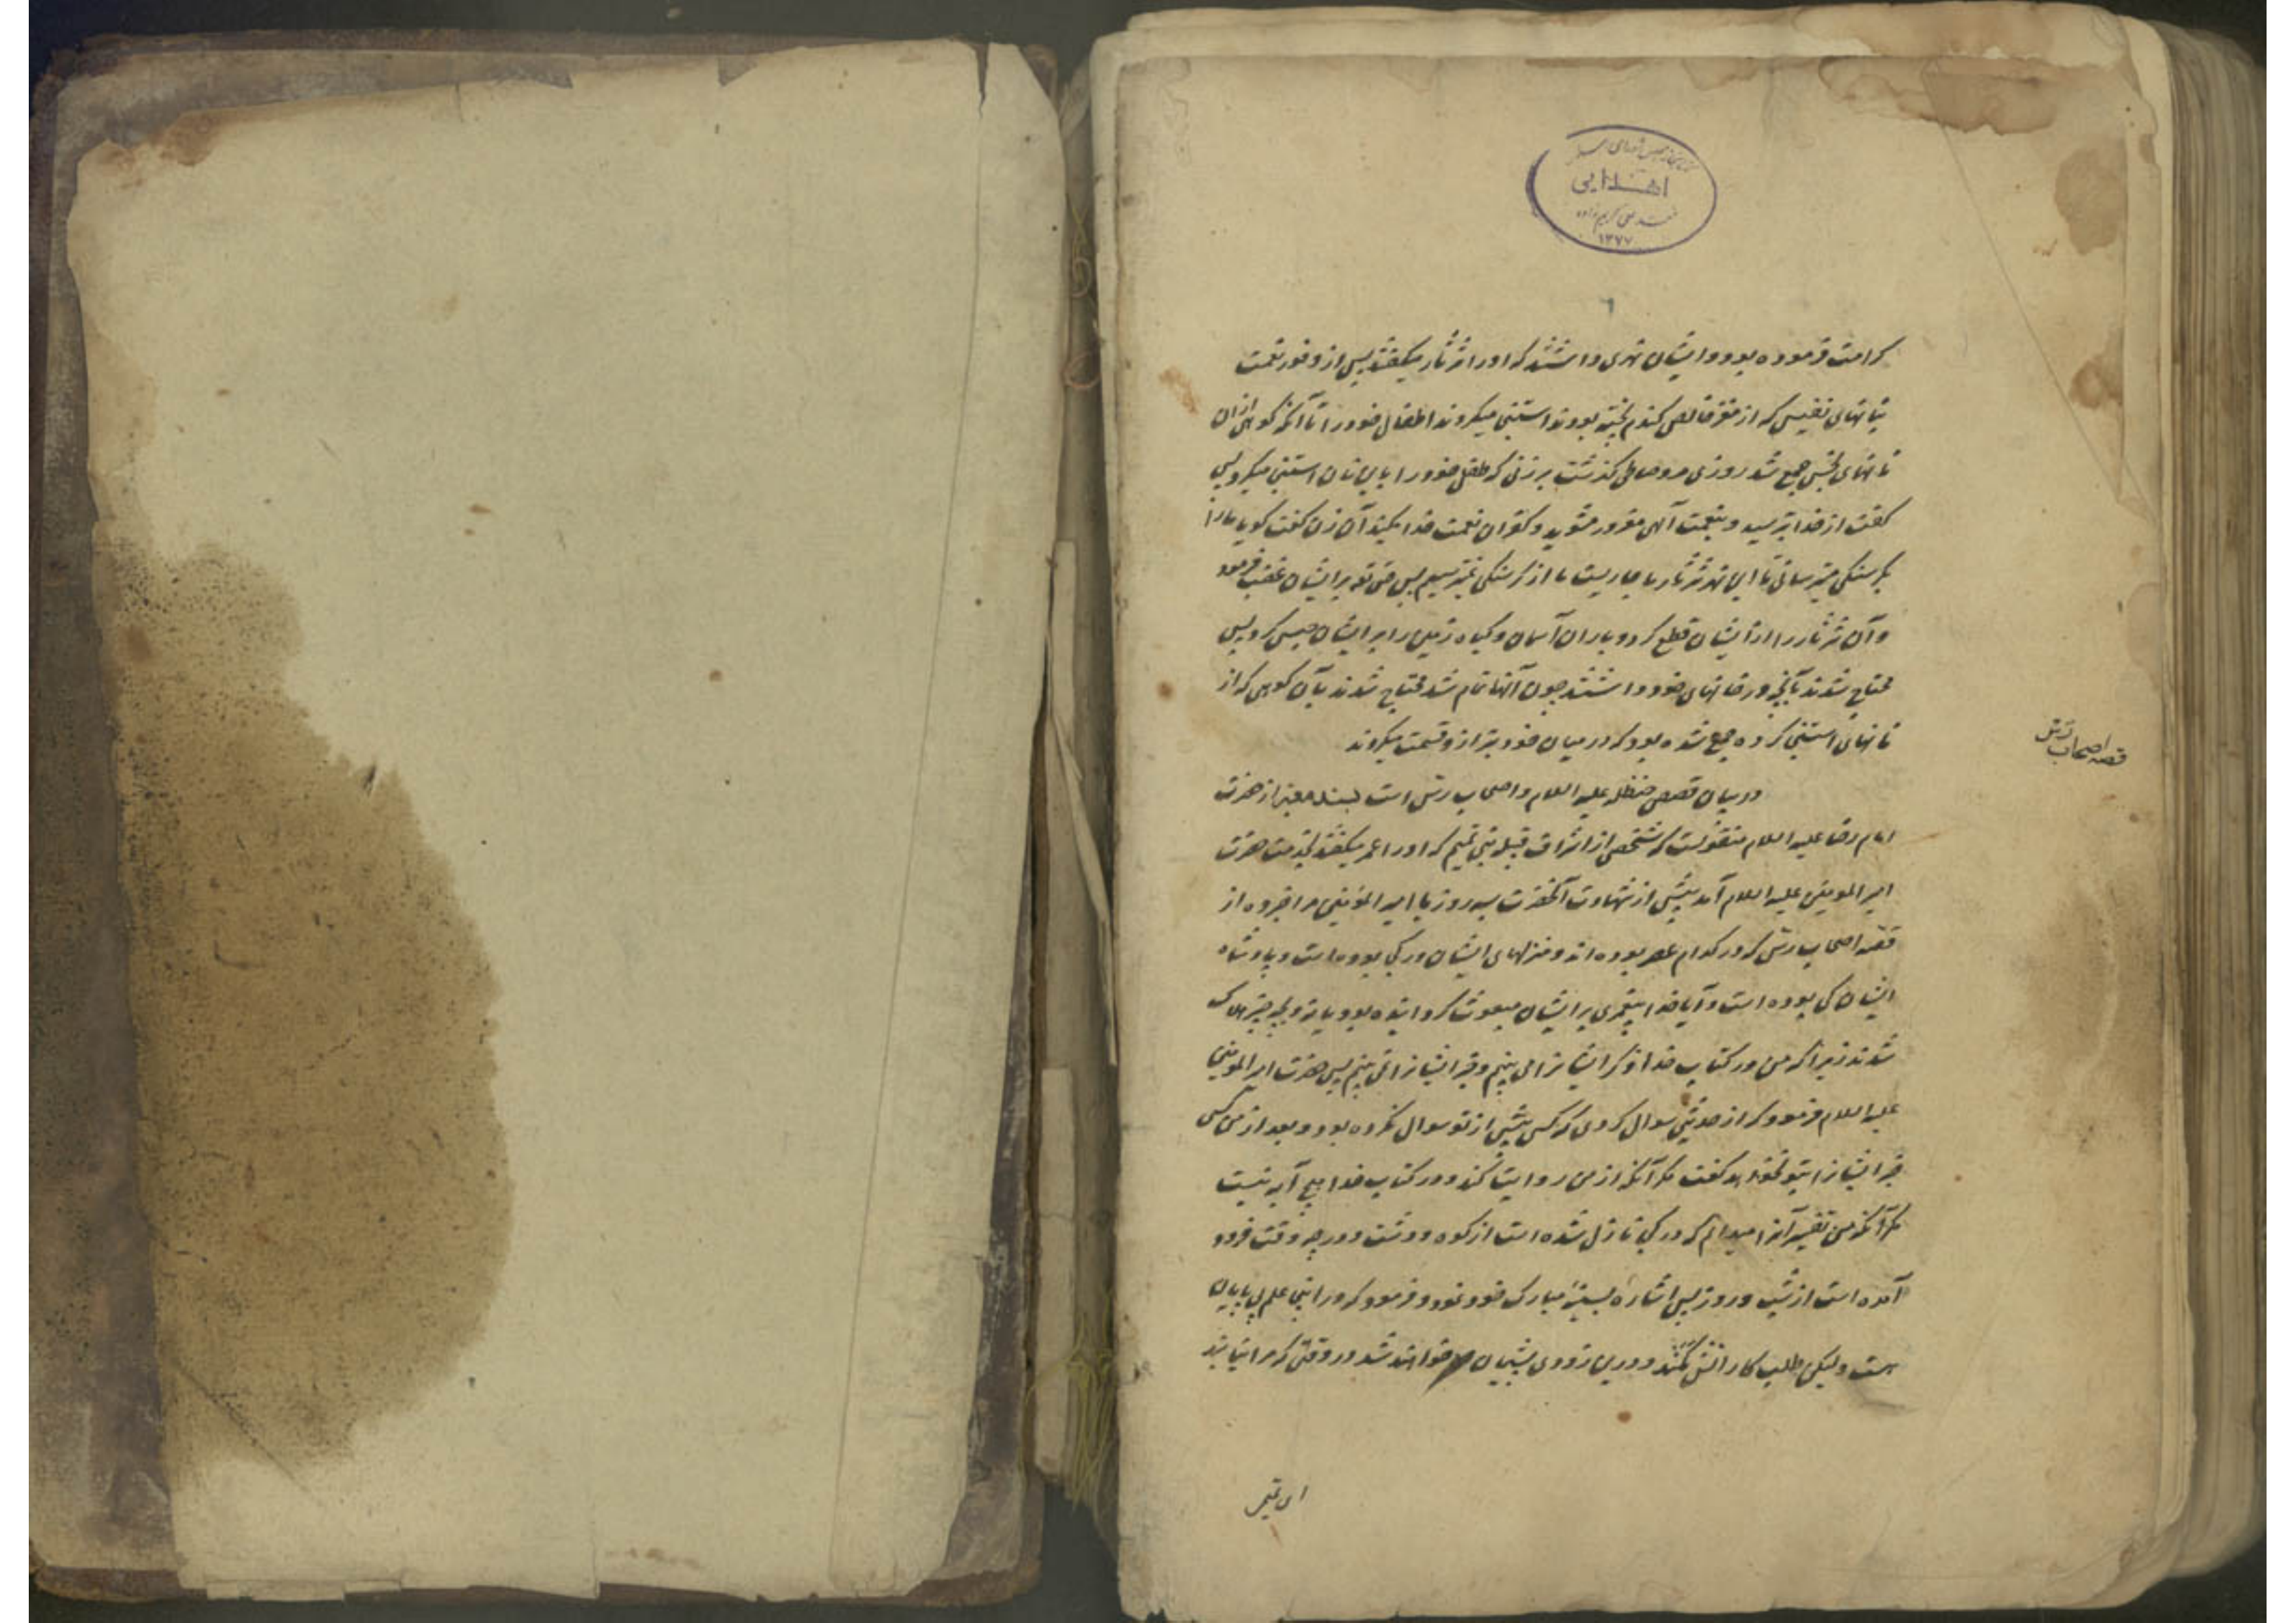 اهدایی
۱۳۷۷
کرامت فرموده بود و ایشان نهری داشتند که او را ثرثار میگفتند پس از وفور نعمت
بنانهای نفیس که از مغز خالص گندم پخته بودند استنجی میکردند اطفال خود را تا آنکه کوهی ازان
نانهای نجس جمع شد روزی مرد صالحی گذشت بر زنی که طفل خود را باین نان استنجی میکرد پس
گفت از خدا بترسید و بنعمت آلهی مغرور مشوید و کفران نعمت خدا مکنید آن زن گفت گویا مارا
بگرسنگی میترسانی تا این نهر ثرثار ما جاریست ما از گرسنگی نمیترسیم پس حق تع برایشان غضب فرمود
و آن ثرثار را از ایشان قطع کرد و باران آسمان و گیاه زمین را بر ایشان حبس کرد پس
محتاج شدند بآنچه در خانهای خود داشتند چون آنها تمام شد محتاج شدند بآن کوهی که از
نانهای استنجی کرده جمع شده بود که در میان خود بترازو قسمت میکردند
قصه اصحاب رس
در بیان قصص حنظله علیه السلام و اصحاب رس است بسند معتبر از حضرت
امام رضا علیه السلام منقولست که شخصی از اشراف قبیله بنی تمیم که او را عمر میگفتند بخدمت حضرت
امیر المومنین علیه السلام آمد پیش از شهادت آنحضرت بسه روز یا امیر المؤمنین مرا خبر ده از
قصه اصحاب رس که در کدام عصر بوده اند و منزلهای ایشان در کجا بوده است و پادشاه
ایشان کی بوده است و آیا خدا پیغمبری بر ایشان مبعوث گردانیده بود یا نه و بچه چیز هلاک
شدند زیرا که من در کتاب خدا ذکر ایشانرا می بینم و خبر ایشانرا نمی بینم پس حضرت امیر المومنین
علیه السلام فرمود که از حدیثی سوال کردی که کسی پیش از تو سوال نکرده بود و بعد از من کسی
خبر ایشانرا بتو نخواهد گفت مگر آنکه از من روایت کند و در کتاب خدا هیچ آیه نیست
مگر آنکه من تفسیر آنرا میدانم که در کجا نازل شده است از کوه و دشت و در چه وقت فرود
آمده است از شب و روز پس اشاره بسینهٔ مبارک خود نمود و فرمود که در اینجا علم بی پایان
هست ولیکن طلب کارانش کمند و درین زودی پشیمان خواهند شد در وقتی که مرا نیابند
ای تمیمی